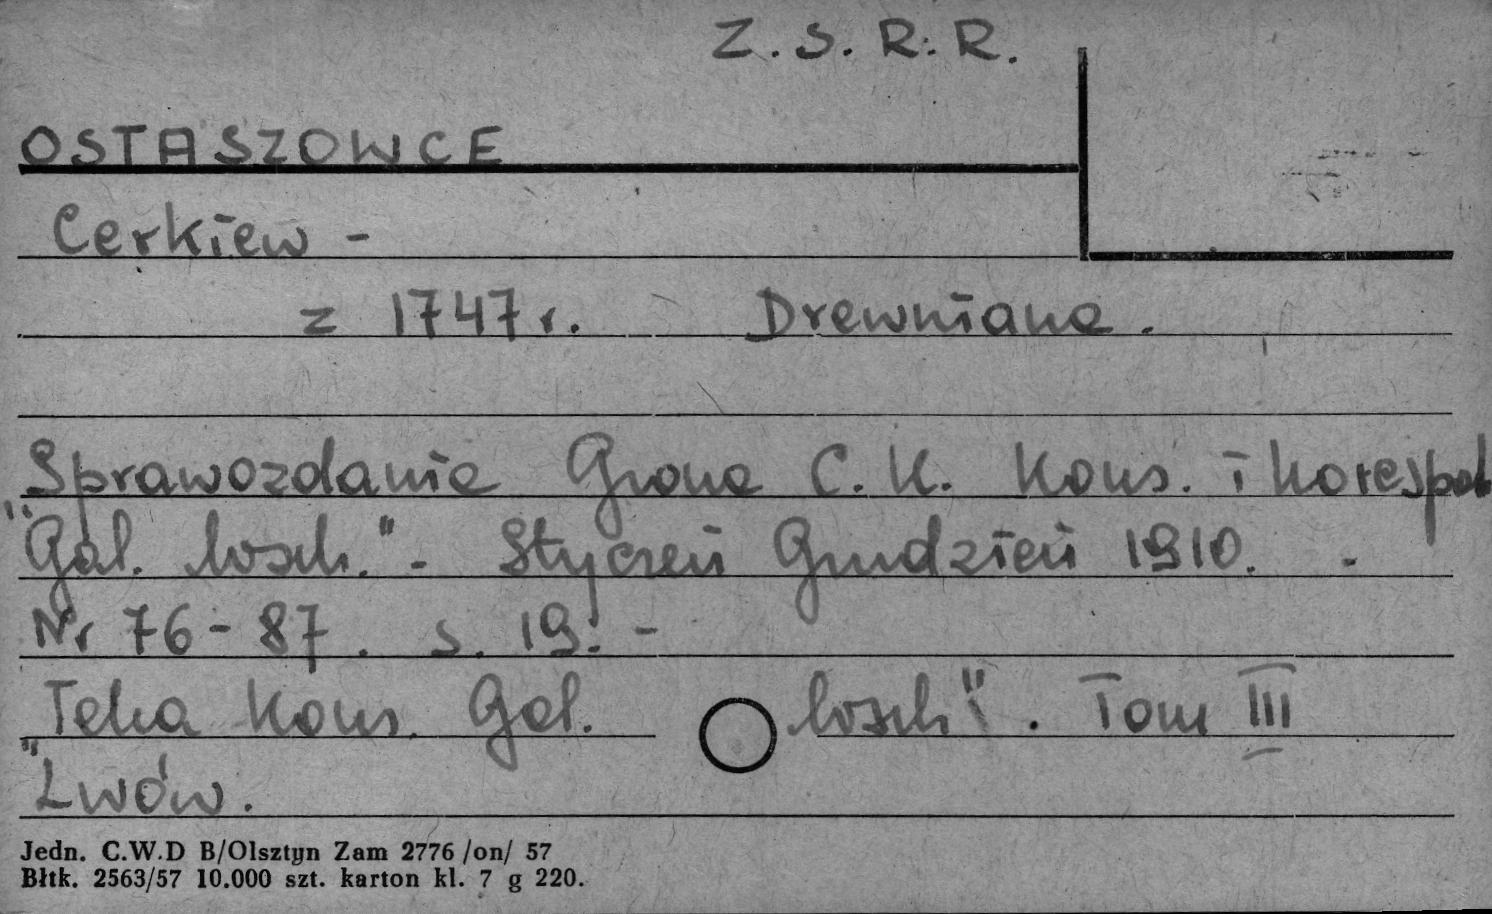 Z. S. R. R.
OSTASZOWCE
Cerkiew -
z 1747 r. Drewniana.
„Sprawozdanie Grona C. K. Kons. i korespond.
Gal. wsch." - Styczeń Grudzień 1910. -
Nr 76 - 87. s. 19. -
„Teka Kons. Gal. wsch". Tom III
Lwów.
Jedn. C.W.D B/Olsztyn Zam 2776 /on/ 57
Błtk. 2563/57 10.000 szt. karton kl. 7 g 220.